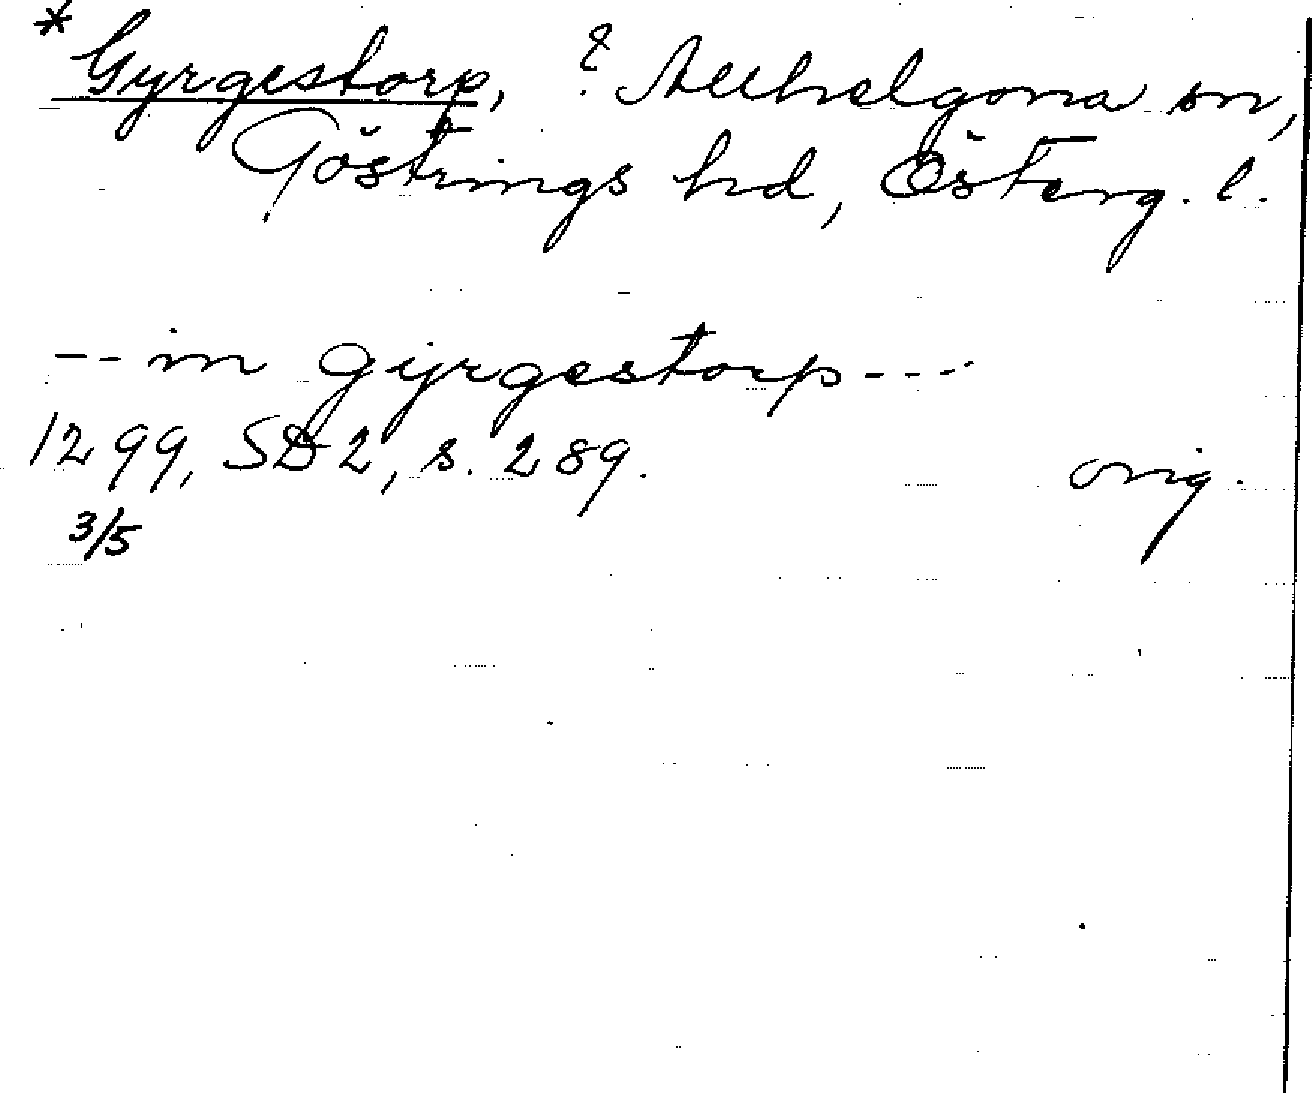 * Gyrgestorp, ? Allhelgona sn,
Göstrings hd, Österg. l.
-- in gyrgestorp ---
1299, SD 2, s. 289. orig.
3/5